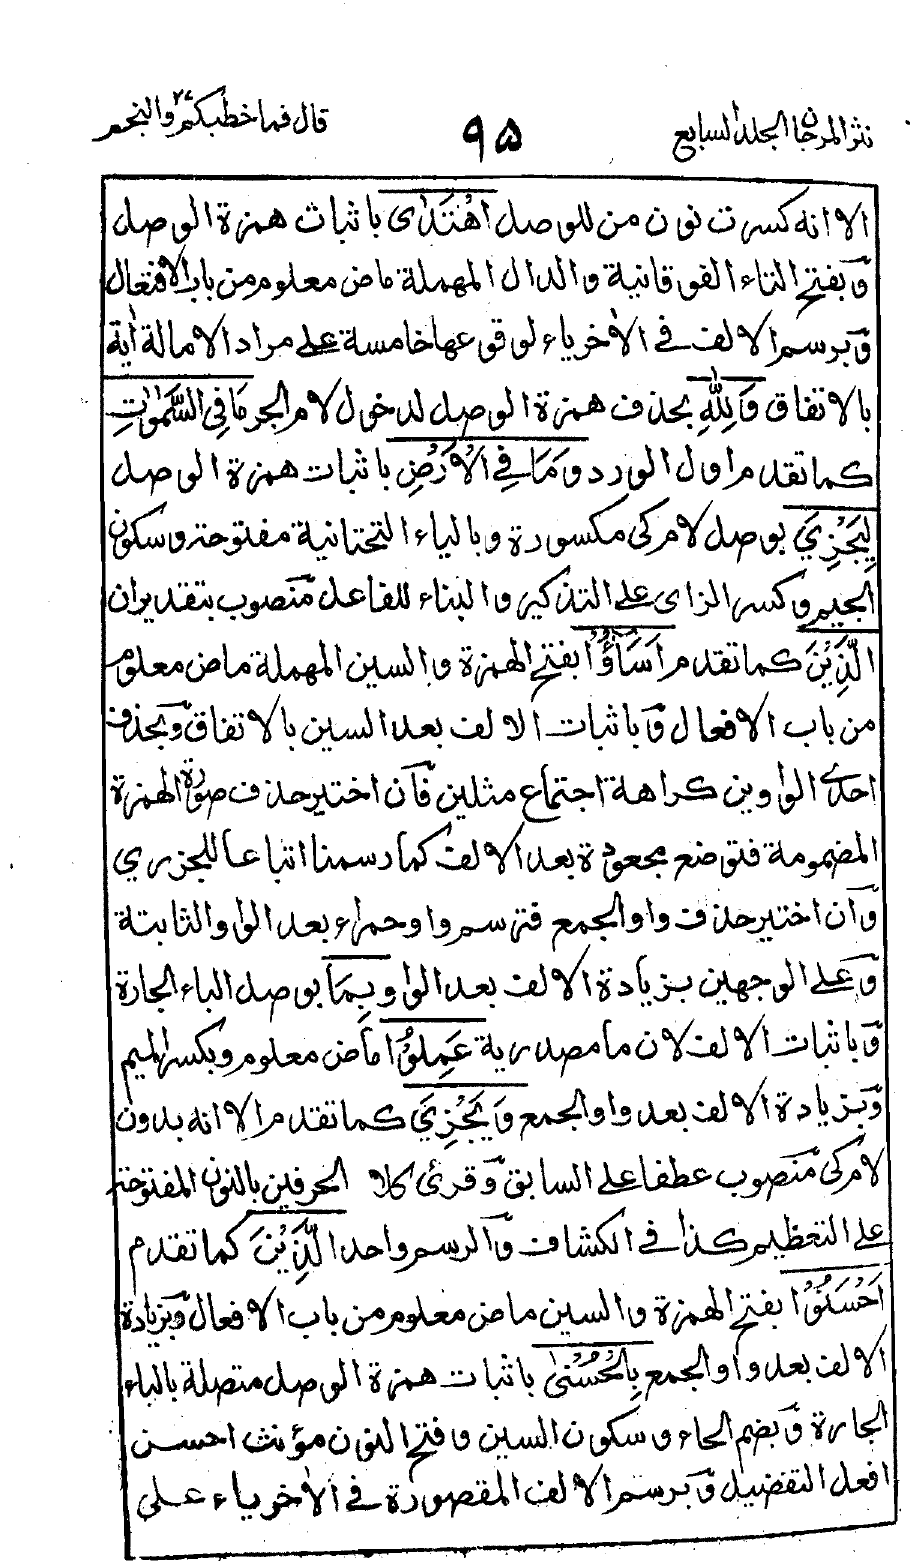 نثر المرجان المجلد السابع
٩٥
قال فما خطبكم ٢٧ والنجم
الا انه كسرت نون من للوصل اهْتَدٰى باثبات همزة الوصل
وبفتح التاء الفوقانية والدال المهملة ماض معلوم من باب الافتعال
وبرسم الالف فى الاخر ياء لوقوعها خامسة على مراد الامالة اية
بالاتفاق وَلِلّٰهِ بحذف همزة الوصل لدخول لام الجر مَا فِى السَّمٰوٰتِ
كما تقدم اول الورد وَمَا فِى الْاَرْضِ باثبات همزة الوصل
لِيَجْزِيَ بوصل لام كى مكسورة وبالياء التحتانية مفتوحة وسكون
الجيم وكسر الزاى على التذكير والبناء للفاعل منصوب بتقدير ان
الَّذِيْنَ كما تقدم اَسَاؤُا بفتح الهمزة والسين المهملة ماض معلوم
من باب الافعال وباثبات الالف بعد السين بالاتفاق وبحذف
احدى الواوين كراهة اجتماع مثلين فان اختير حذف صورة الهمزة
المضمومة فتوضع مجعودة بعد الالف كما رسمنا اتباعا للجزري
وان اختير حذف واو الجمع فترسم واو حمراء بعد الواو الثابتة
وعلى الوجهين بزيادة الالف بعد الواو بِمَا بوصل الباء الجارة
وباثبات الالف لان ما مصدرية عَمِلُوْا ماض معلوم وبكسر الميم
وبزيادة الالف بعد واو الجمع وَيَجْزِيَ كما تقدم الا انه بدون
لام كى منصوب عطفا على السابق وقرئ كلا الحرفين بالنون المفتوحة
على التعظيم كذا فى الكشاف والرسم واحد الَّذِيْنَ كما تقدم
اَحْسَنُوْا بفتح الهمزة والسين ماض معلوم من باب الافعال وبزيادة
الالف بعد واو الجمع بِالْحُسْنٰى باثبات همزة الوصل متصلة بالباء
الجارة وبضم الحاء وسكون السين وفتح النون مؤنث احسن
افعل التفضيل وبرسم الالف المقصورة فى الاخر ياء على